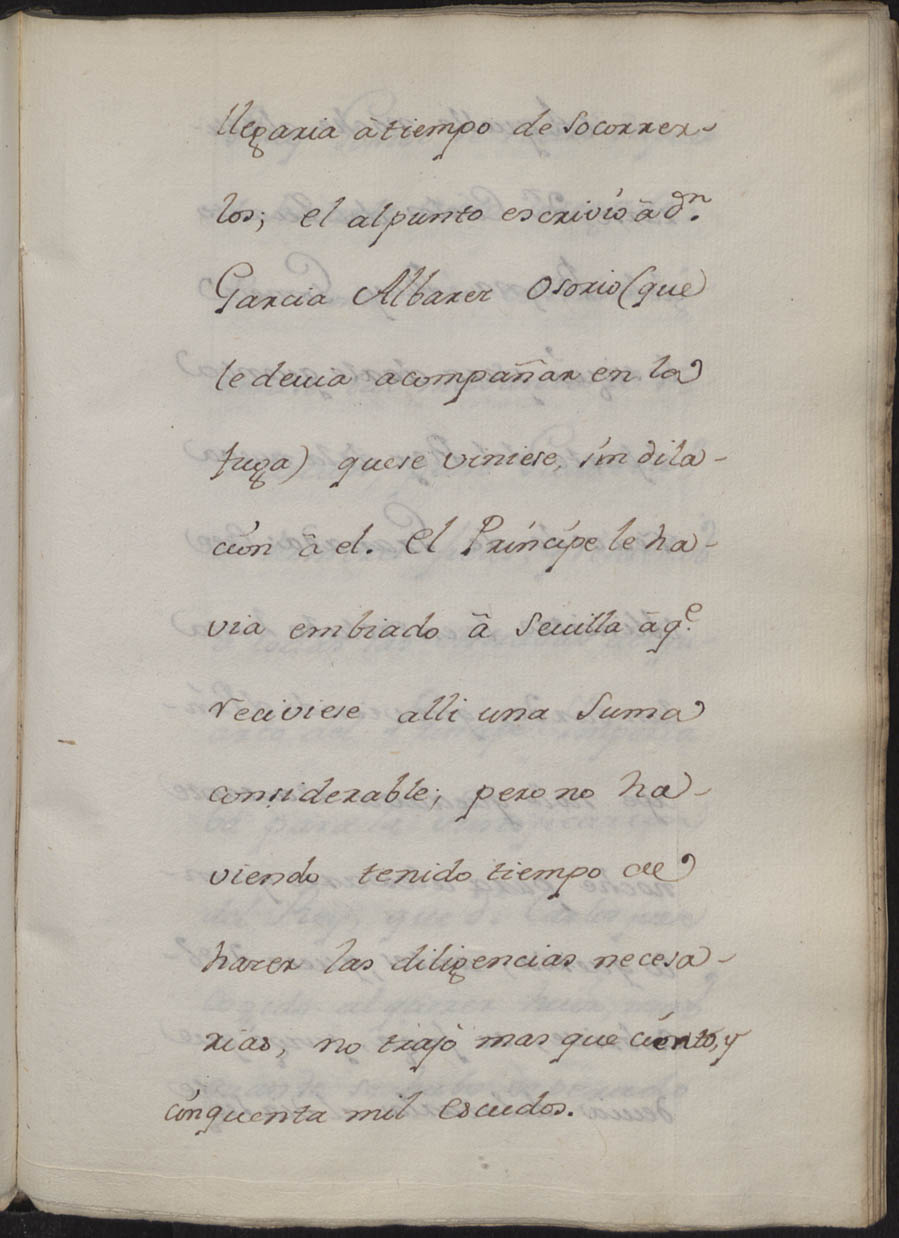 llegaria â tiempo de socorrer-
los; el al punto escrivió â dn.
Garcia Albarez Osorio (que
le devia acompañar en la
fuga) que se viniese, sin dila-
ción â el. El Príncipe le ha-
via embiado â Sevilla â qe.
reciviese alli una suma
considerable; pero no ha-
viendo tenido tiempo de
hazer las diligencias necesa-
rias, no trajo mas que ciento, y
cinquenta mil escudos.